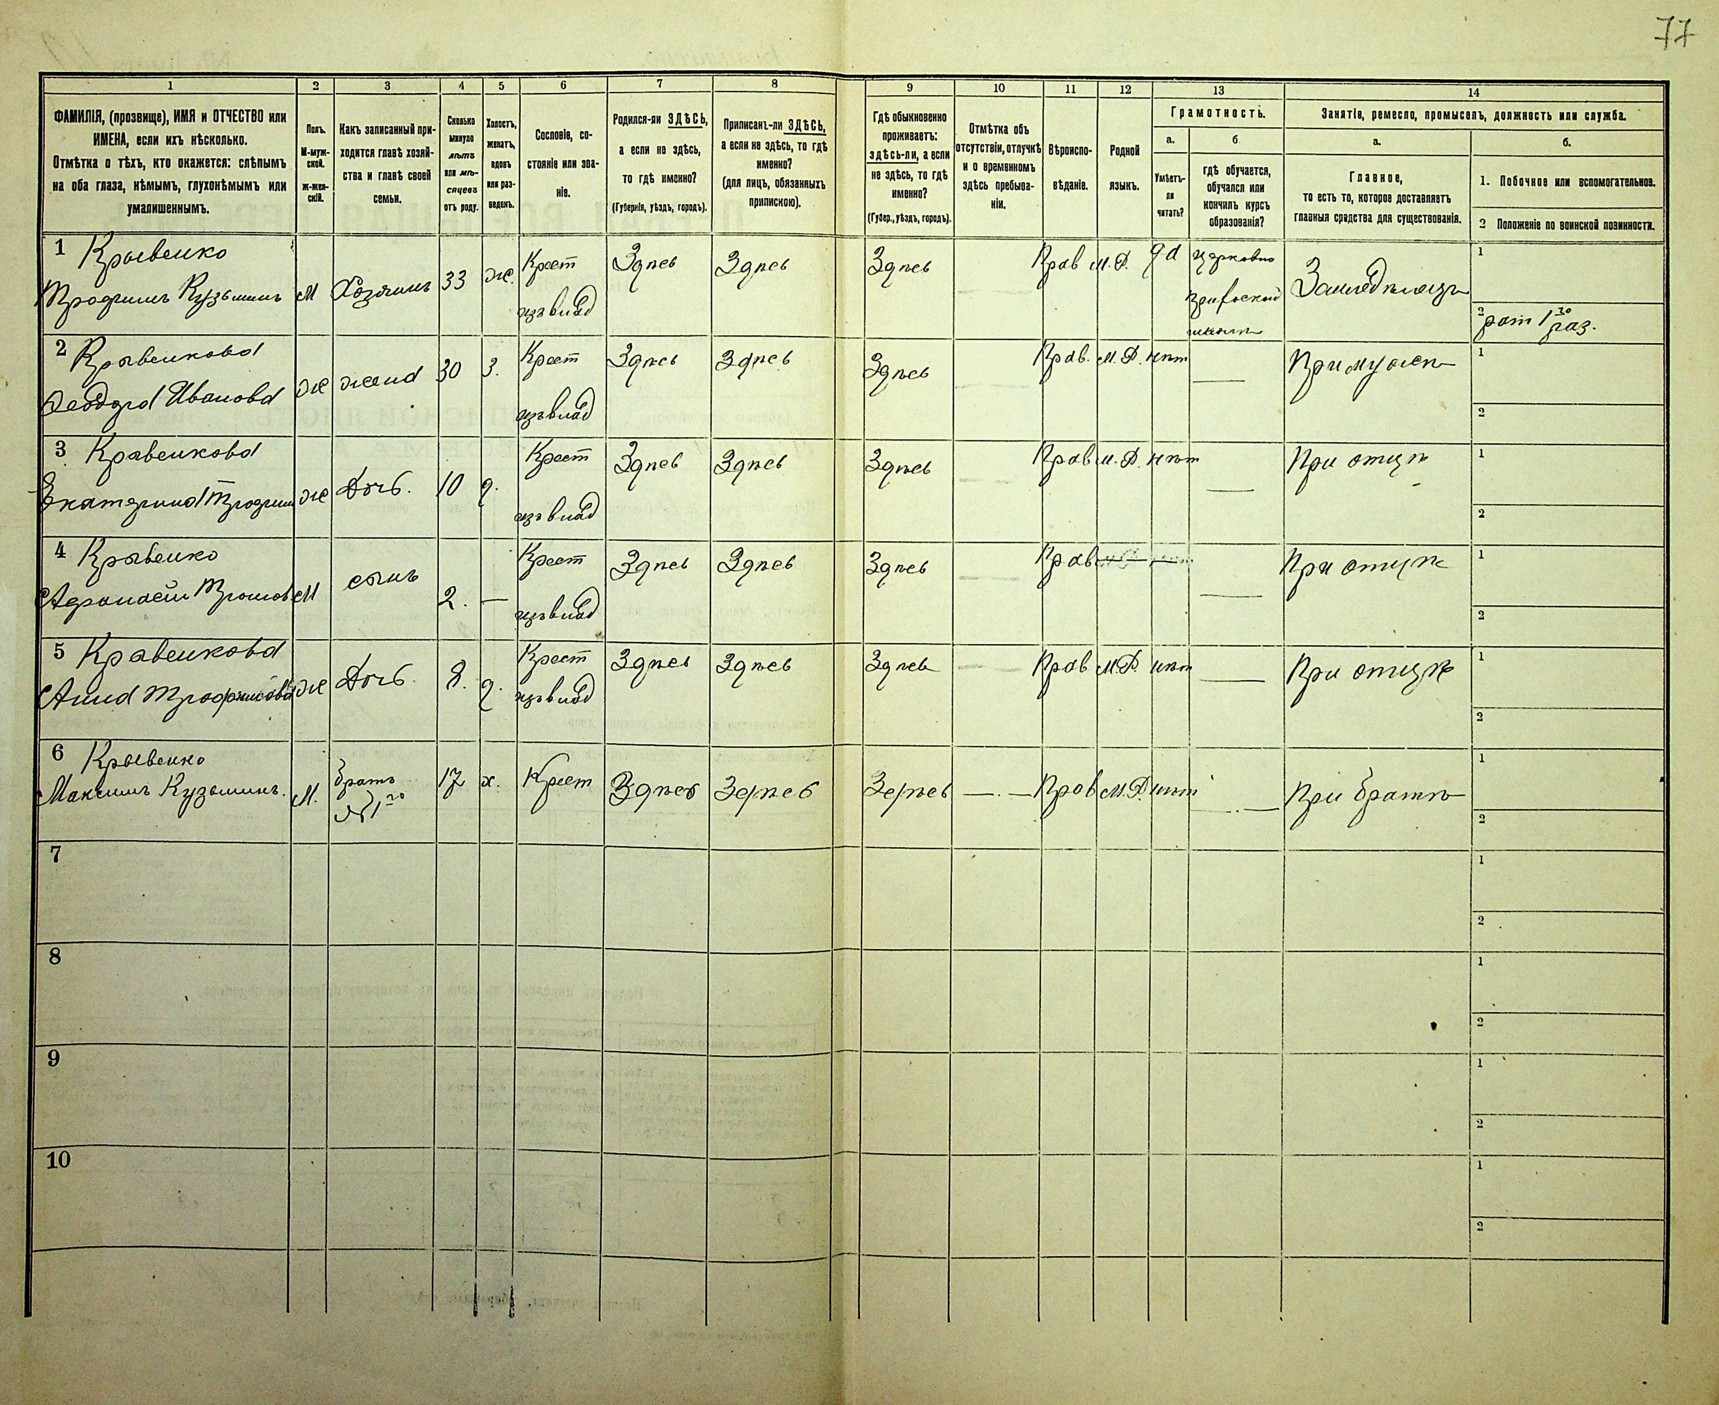 77
1 2 3 4 5 6 7 8 9 10 11 12 13 14
ФАМИЛІЯ, (прозвище), ИМЯ и ОТЧЕСТВО или
ИМЕНА, если ихъ нѣсколько.
Отмѣтка о тѣхъ, кто окажется: слѣпымъ
на оба глаза, нѣмымъ, глухонѣмымъ или
умалишеннымъ.
Полъ.
М-муж-
ской.
ж-жен-
скій.
Какъ записанный при-
ходится главѣ хозяй-
ства и главѣ своей
семьи.
Сколько
минуло
лѣтъ
или мѣ-
сяцевъ
отъ роду.
Холостъ,
женатъ,
вдовъ
или раз-
веденъ.
Сословіе, со-
стояніе или зва-
ніе.
Родился-ли ЗДѢСЬ,
а если не здѣсь,
то гдѣ именно?
(Губернія, уѣздъ, городъ).
Приписанъ-ли ЗДѢСЬ,
а если не здѣсь, то гдѣ
именно?
(для лицъ, обязанныхъ
припискою).
Гдѣ обыкновенно
проживаетъ:
здѣсь-ли, а если
не здѣсь, то гдѣ
именно?
(Губер., уѣздъ, городъ).
Отмѣтка объ
отсутствіи, отлучкѣ
и о временномъ
здѣсь пребыва-
ніи.
Вѣроиспо-
вѣданіе.
Родной
языкъ.
Грамотность.
а. б
Умѣетъ-
ли
читать?
гдѣ обучается,
обучался или
кончилъ курсъ
образованія?
Занятіе, ремесло, промыселъ, должность или служба.
а. б.
Главное,
то есть то, которое доставляетъ
главныя средства для существованія.
1. Побочное или вспомогательное.
2 Положеніе по воинской повинности.
1 Кравенко
Трофимъ Кузьминъ М Хозяинъ 33 ж. Крест Здѣсь Здѣсь Здѣсь Прав М.Р. да церковно
изъ влад
приходской
школѣ
Земледѣлецъ
1
2 рат 1го раз.
2 Кравенкова
Федора Иванова Ж жена 30 з. Крест Здѣсь Здѣсь Здѣсь Прав. М.Р. нѣт — При мужѣ
изъ влад
1
2
3 Кравенкова
Екатерина Трофим Ж Дочь. 10 д. Крест Здѣсь Здѣсь Здѣсь Прав М.Р. нѣт — При отцѣ
изъ влад
1
2
4 Кравенко
Афанасій М сынъ 2. — Крест Здѣсь Здѣсь Здѣсь Прав М.Р. нѣт — При отцѣ
изъ влад
1
2
5 Кравенкова
Анна Трофимова Ж Дочь. 8. д. Крест Здѣсь Здѣсь Здѣсь — Прав М.Р. нѣт — При отцѣ
изъ влад
1
2
6 Кравенко
Максимъ Кузьминъ. М. братъ 17 х. Крест Здѣсь Здѣсь Здѣсь — Прав М.Р. нѣт — При братѣ
№ 1го
1
2
7
1
2
8
1
2
9
1
2
10
1
2